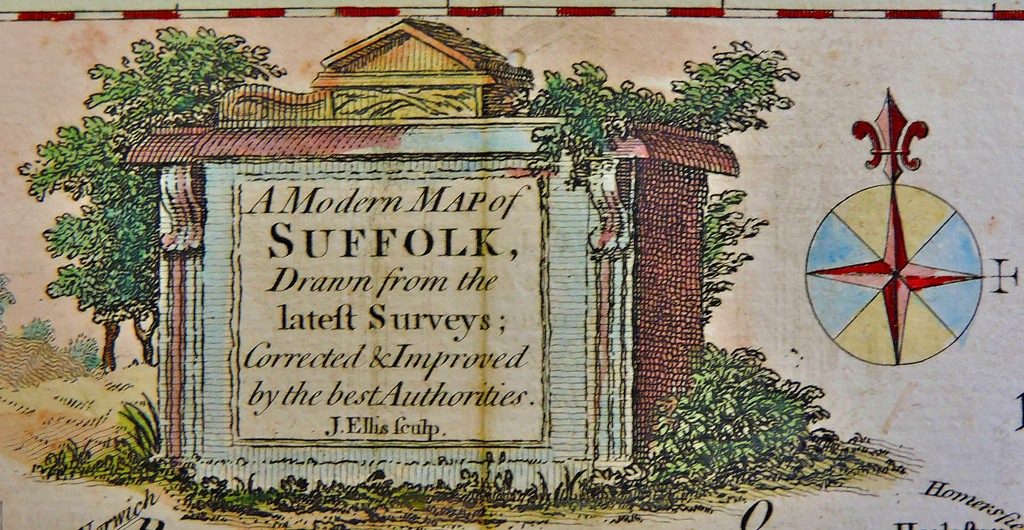 A Modern MAP of
SUFFOLK,
Drawn from the
lateſt Surveys;
Corrected & Improved
by the best Authorities.
J. Ellis ſculp.